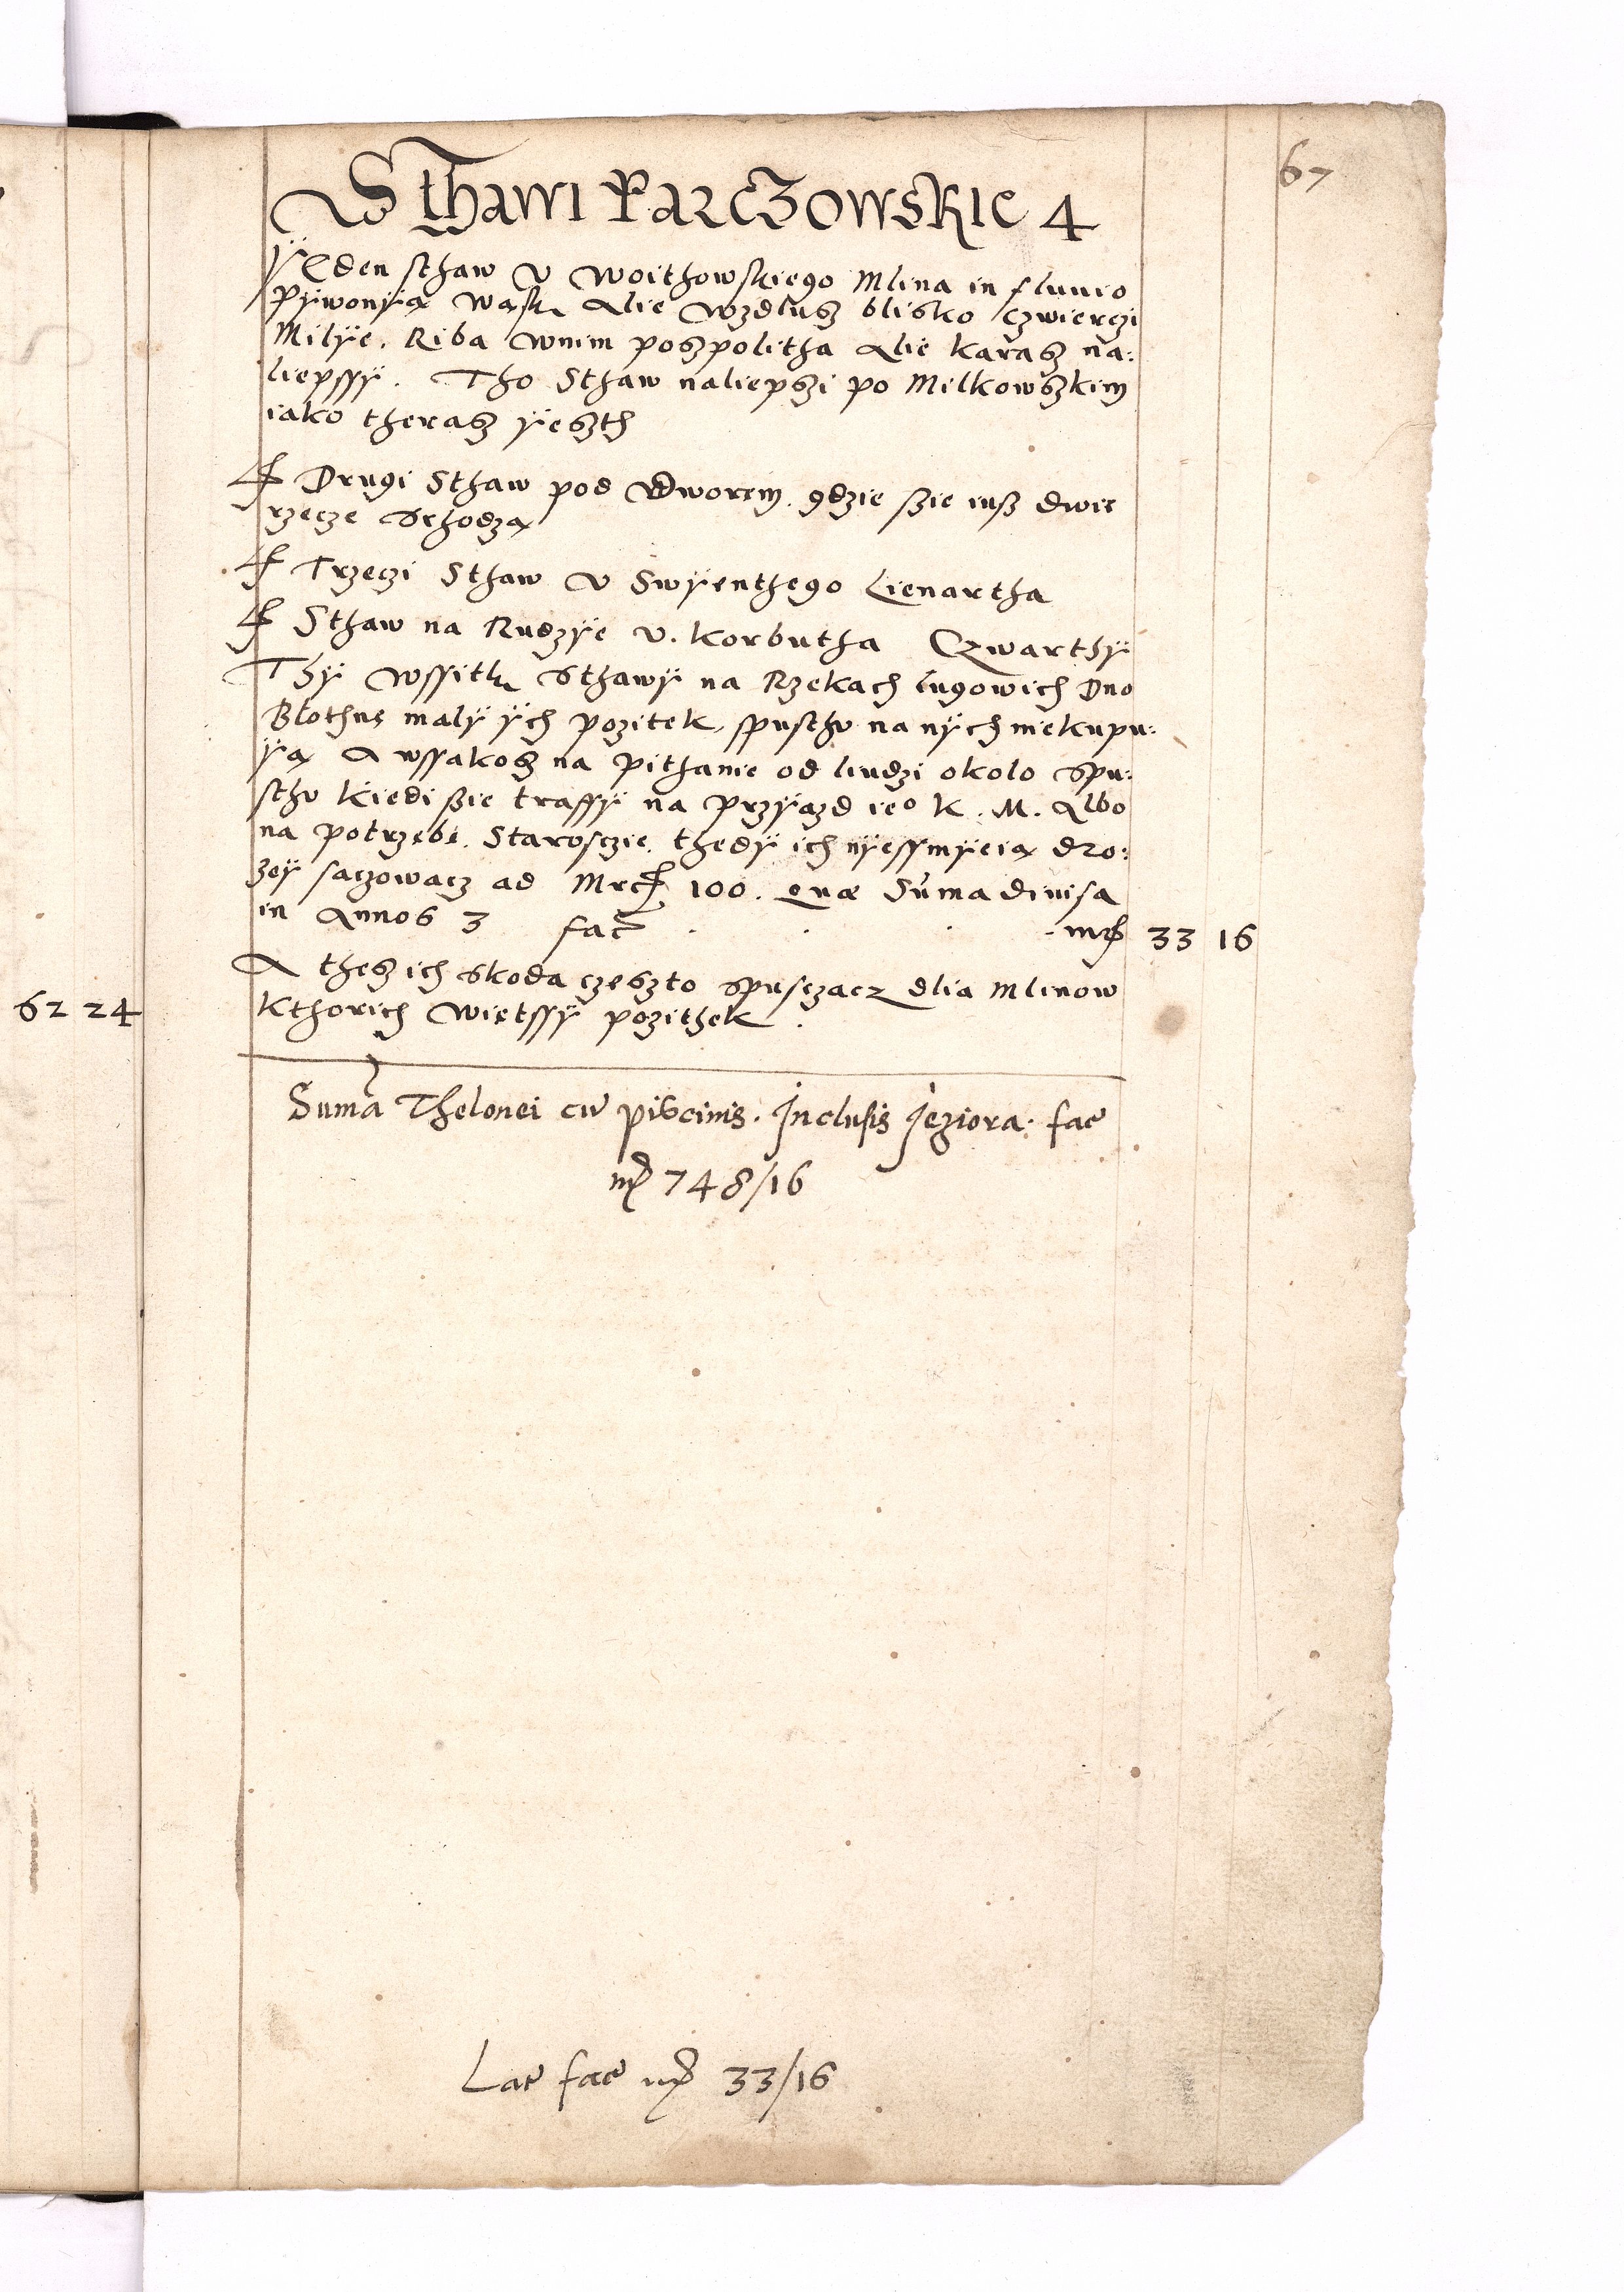 67
Sthawi Parczowskie 4
Yeden sthaw v Woithowskiego Mlina in fluuio
Pÿwonÿą Wąsk. Alie wzdlusz blisko czwierczi
Milÿe. Riba wnim poszpolitha Alie Karasz na:
liepssÿ. Tho Sthaw naliepszi po Milkowszkim
iako therasz ÿeszth
Drugi Sthaw pod Dworem. gdzie szie iusz dwie
rzecze schodzą
Trzeczi Sthaw v Swÿenthego Lienartha
Sthaw na Rudzÿe v. Korbutha Czwarthÿ
Thÿ wssitk. Sthawÿ na Rzekach Lugowich Dno
Błothne malÿ ÿch pozitek, spusthv na nÿch niekupu:
ÿą A wssakosz na pithanie od liudzi okolo spu:
sthv Kiedi szie traffÿ na przÿazd ieo K. M. Albo
na potrzebę. Starosczie. thedÿ ich nÿessmÿeią dro:
zeÿ saczowacz ad Mrc 100. Quæ Suma diuisa
in Annos 3 fac̃ . . . mrc 33 16
A thesz ich skoda czeszto spusczacz dlia Mlinow
Kthorich Więtssÿ pozithek.
62 24
Suma Thelonei cũ piscinis. Inclusis Jeziora. fac
mr 748/16
Lat fac mr 33/16